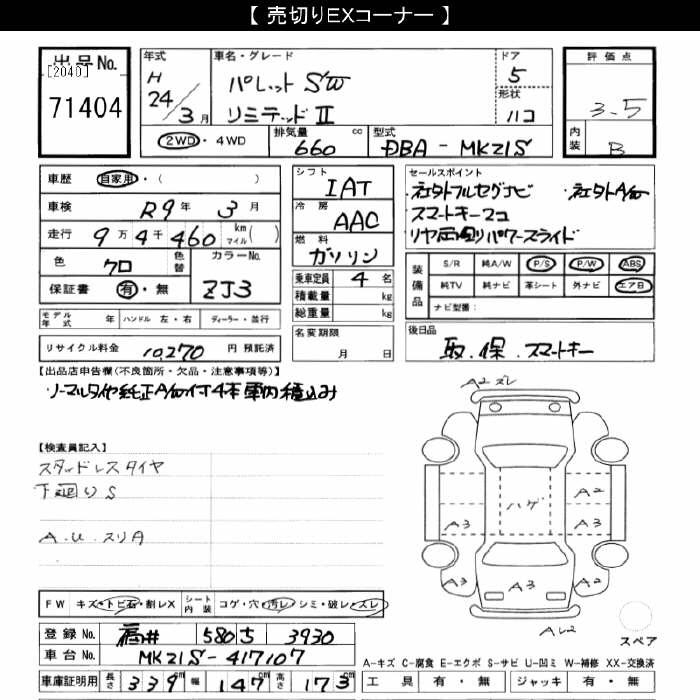 【 売切りEXコーナー 】
出品No.
[2040]
71404
年式
H
24/3月
車名・グレード
パレット SW
リミテッド II
ドア
5
形状
ハコ
評価点
3.5
内装
B
2WD・4WD
排気量 660 cc
型式 DBA - MK21S
車歴 自家用・( )
車検 R9年 3月
走行 9万4千460 km マイル( )
色 クロ
色替
カラーNo.
ZJ3
保証書 有・無
モデル年式 年 ハンドル 左・右 ディーラー・並行
リサイクル料金 10,270 円 預託済
シフト
IAT
冷房
AAC
燃料
ガソリン
乗車定員 4 名
積載量 kg
総重量 kg
名変期限
月 日
セールスポイント
社外フルセグナビ 社外A/W
スマートキー2コ
リヤ両側パワースライド
装備品
S/R 純A/W P/S P/W ABS
純TV 純ナビ 革シート 外ナビ エアB
ナビ型番:
後日品
取.保.スマートキー
【出品店申告欄(不良箇所・欠品・注意事項等)】
ノーマルタイヤ純正A/W付4本車内積込み
【検査員記入】
スタッドレスタイヤ
下廻りS
A.U.スリA
FW キズ・トビ石・割レX シート内装 コゲ・穴・汚レ・シミ・破レ・スレ
登録No. 福井 580 ち 3930
車台No. MK21S-417107
車庫証明用 長さ 339 幅 147 高さ 173
A2 ズレ
ハゲ
A2
A3
A3
A3
A3
A2
A3
Aレ2
スペア
A-キズ C-腐食 E-エクボ S-サビ U-凹ミ W-補修 XX-交換済
工具 有・無 ジャッキ 有・無